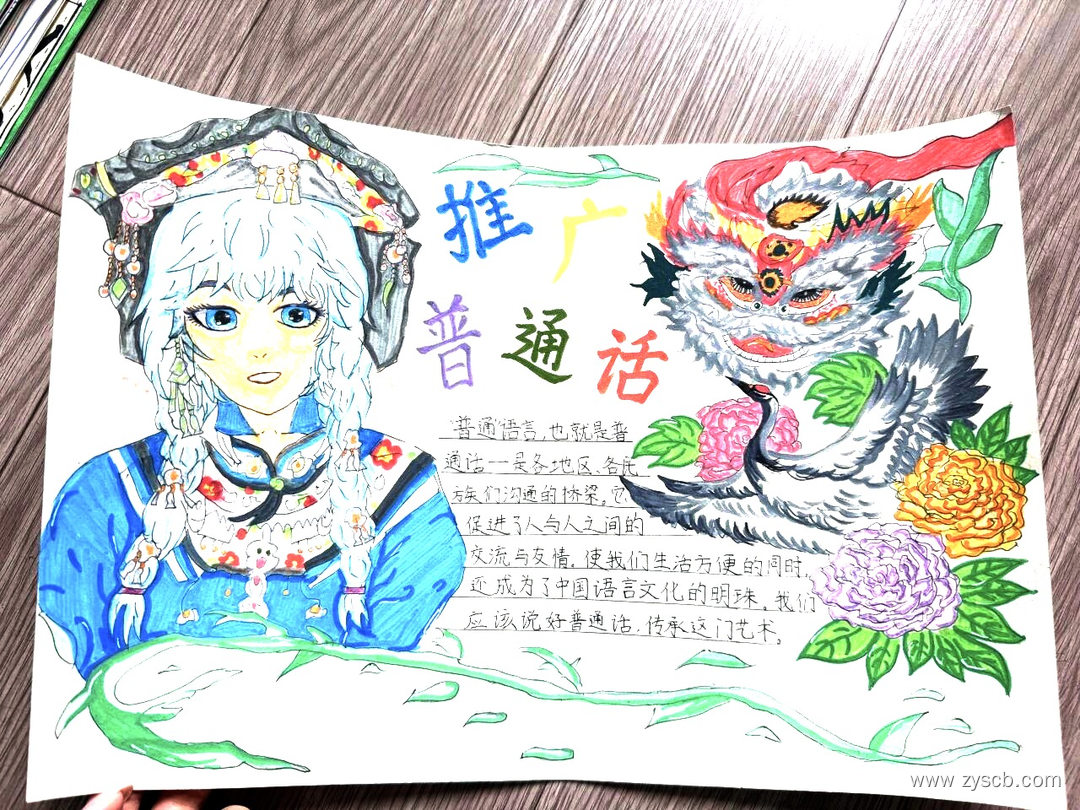 推广
普通话
普通语言,也就是普
通话--是各地区、各民
族们沟通的桥梁。它
促进了人与人之间的
交流与友情,使我们生活方便的同时,
还成为了中国语言文化的明珠。我们
应该说好普通话,传承这门艺术。
www.zyscb.com